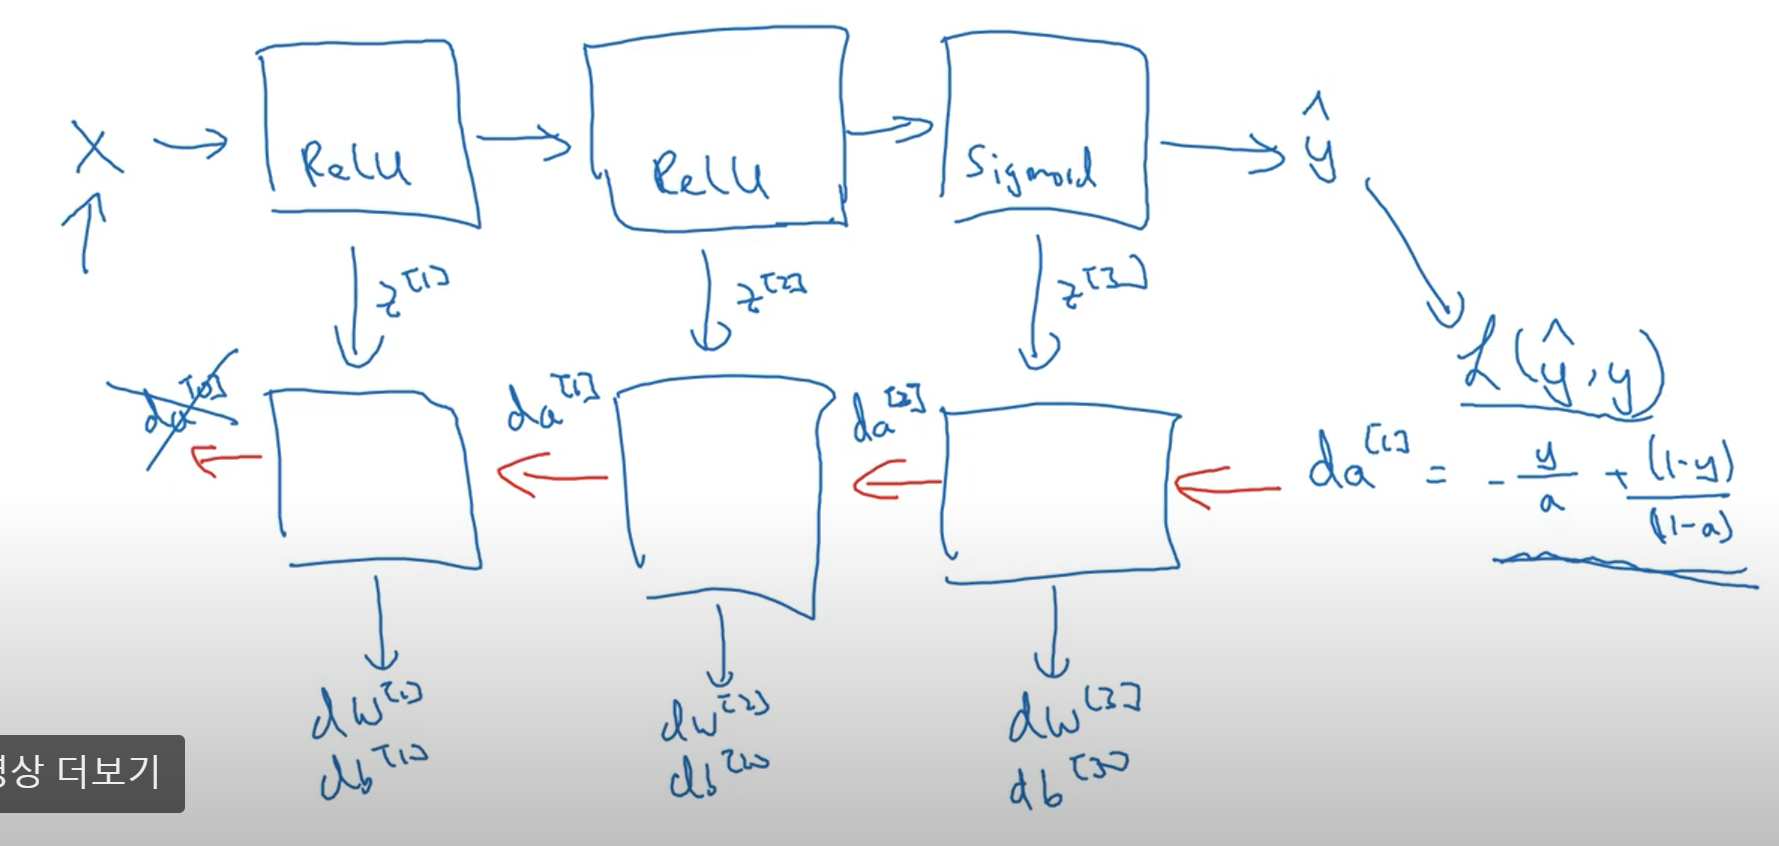 X → ReLU → ReLU → Sigmoid → ŷ
z^[1] z^[2] z^[3]
L(ŷ, y)
da^[0] da^[1] da^[2] da^[l] = - y/a + (1-y)/(1-a)
dw^[1] dw^[2] dw^[3]
db^[1] db^[2] db^[3]
영상 더보기